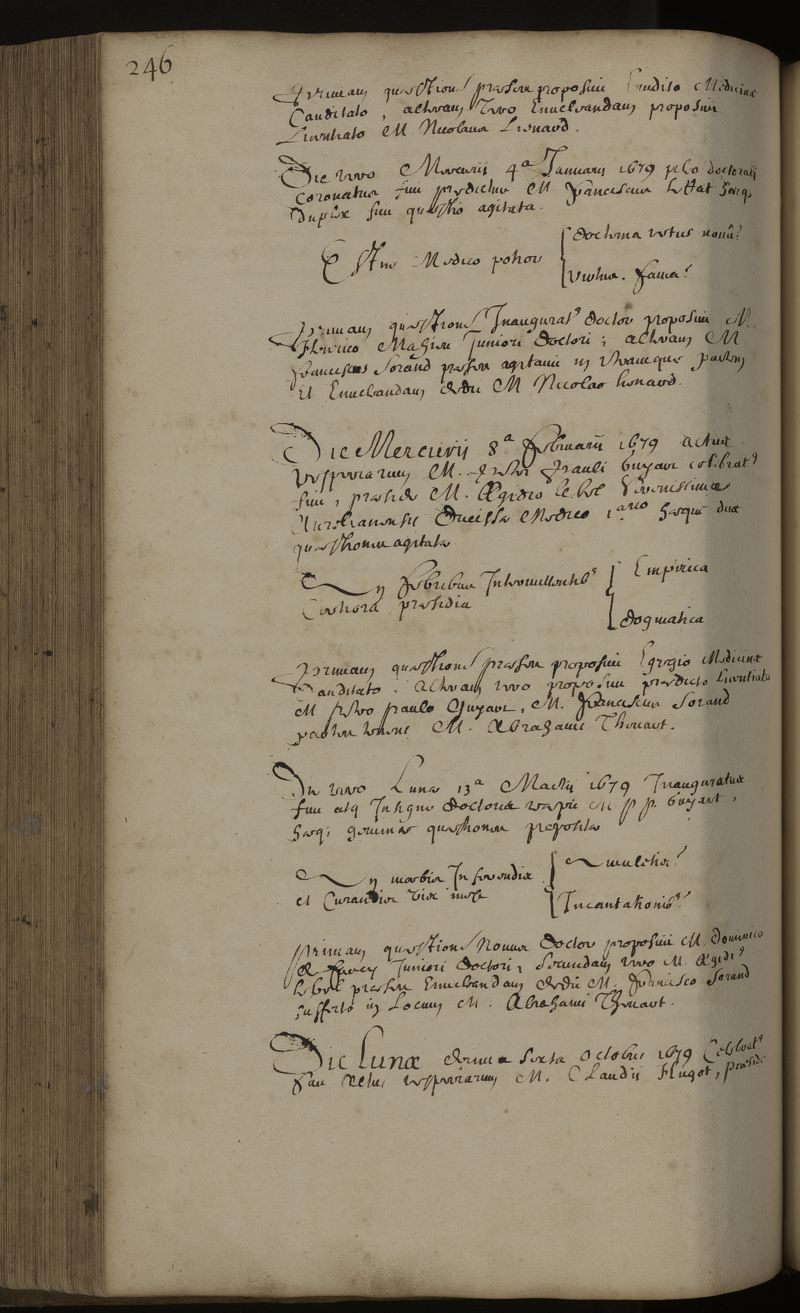 246
Primam quæstionē præses proposuit Erudito Medicinæ
Candidato, alteram vero Enucleandam proposuit
Licentiato M. Nicolaus Lienard.
Die vero Mercurii 4ª Januarii 1679 pileo doctorali
Coronatus fuit prædictus M. franciscus
Duplex fuit quæstio agitata.
Estne Medico potior
doctrina vetus novâ?
virtus. fama?
Primam quæstionē Inaugurat9 doctor proposuit M.
Florico Mahieu Juniori Doctori; alteram M.
franciscus Lorand præses agitavit in utramque partem
Et Enucleandam dedit M Nicolao Lienard.
Die Mercurij 8ª februarii 1679 actus
vesperiarum M. Petri Pauli Guyart celebrat9
fuit, præside M. Ægidio le bel Serenissimæ
Aurelianensis Ducissæ Medico 1ario hæque duæ
quæstiones agitatæ
In febribus Intermittentib9
Tutiora præsidia
Empirica
dogmatica
Primam quæstionē præses proposuit Egregio Medicinæ
Candidato. Alteram vero proposuit prædicto Licentiato
M petro paulo Guyart, M. franciscus Lorand
M. Abrahami Thouart.
Die vero Lunæ 13ª Martii 1679 Inauguratus
fuit atq Insigne doctoræ cepit M. p p. Guyart,
hæq; geminæ quæstiones propositæ
In morbis Inferendis
et Curandis
amuletis?
Incantationib9?
Primam quæstionē Novus Doctor proposuit M. Dominico
Juniori doctori; Secundam vero M. Ægidi9
le bel præses Enucleandam dedit M. francisco Lorand
suffecto in Locum M. Abrahami Thouart.
Die Lunæ decima Sexta Octobris 1679 Celebrat9
fuit Actus vesperiarum M. Claudii Flugot, præside